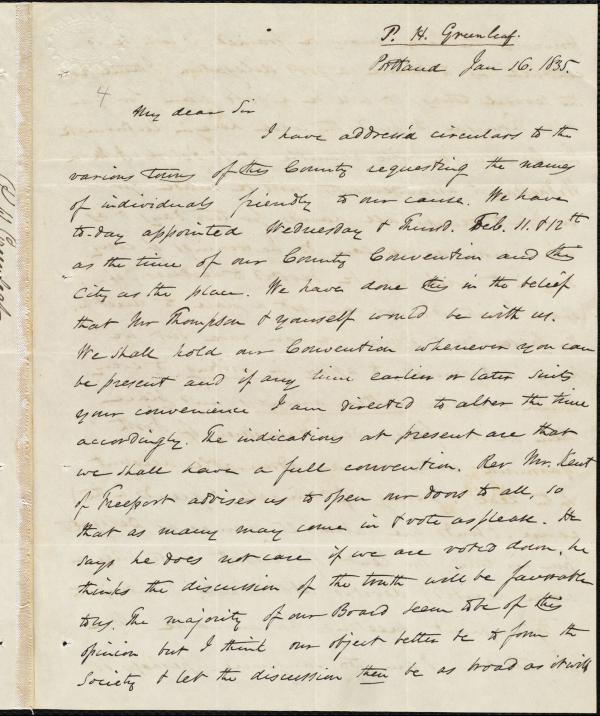 P. H. Greenleaf.
Portland Jan 16. 1835.
4
My dear Sir
I have address'd circulars to the
various towns of this County requesting the names
of individuals friendly to our cause. We have
to-day appointed Wednesday & Thursd. Feb. 11. & 12th
as the time of our County Convention and this
City as the place. We have done this in the belief
that Mr Thompson & yourself would be with us.
We shall hold our Convention whenever you can
be present and if any time earlier or later suits
your convenience I am directed to alter the time
accordingly. The indications at present are that
we shall have a full convention. Rev Mr. Kent
of Freeport advises us to open our doors to all, so
that as many may come in & vote as please. He
says he does not care if we are voted down, he
thinks the discussion of the truth will be favorable
to us. The majority of our Board seem to be of this
opinion but I think our object better be to form the
Society & let the discussion then be as broad as it will
P. H. Greenleaf